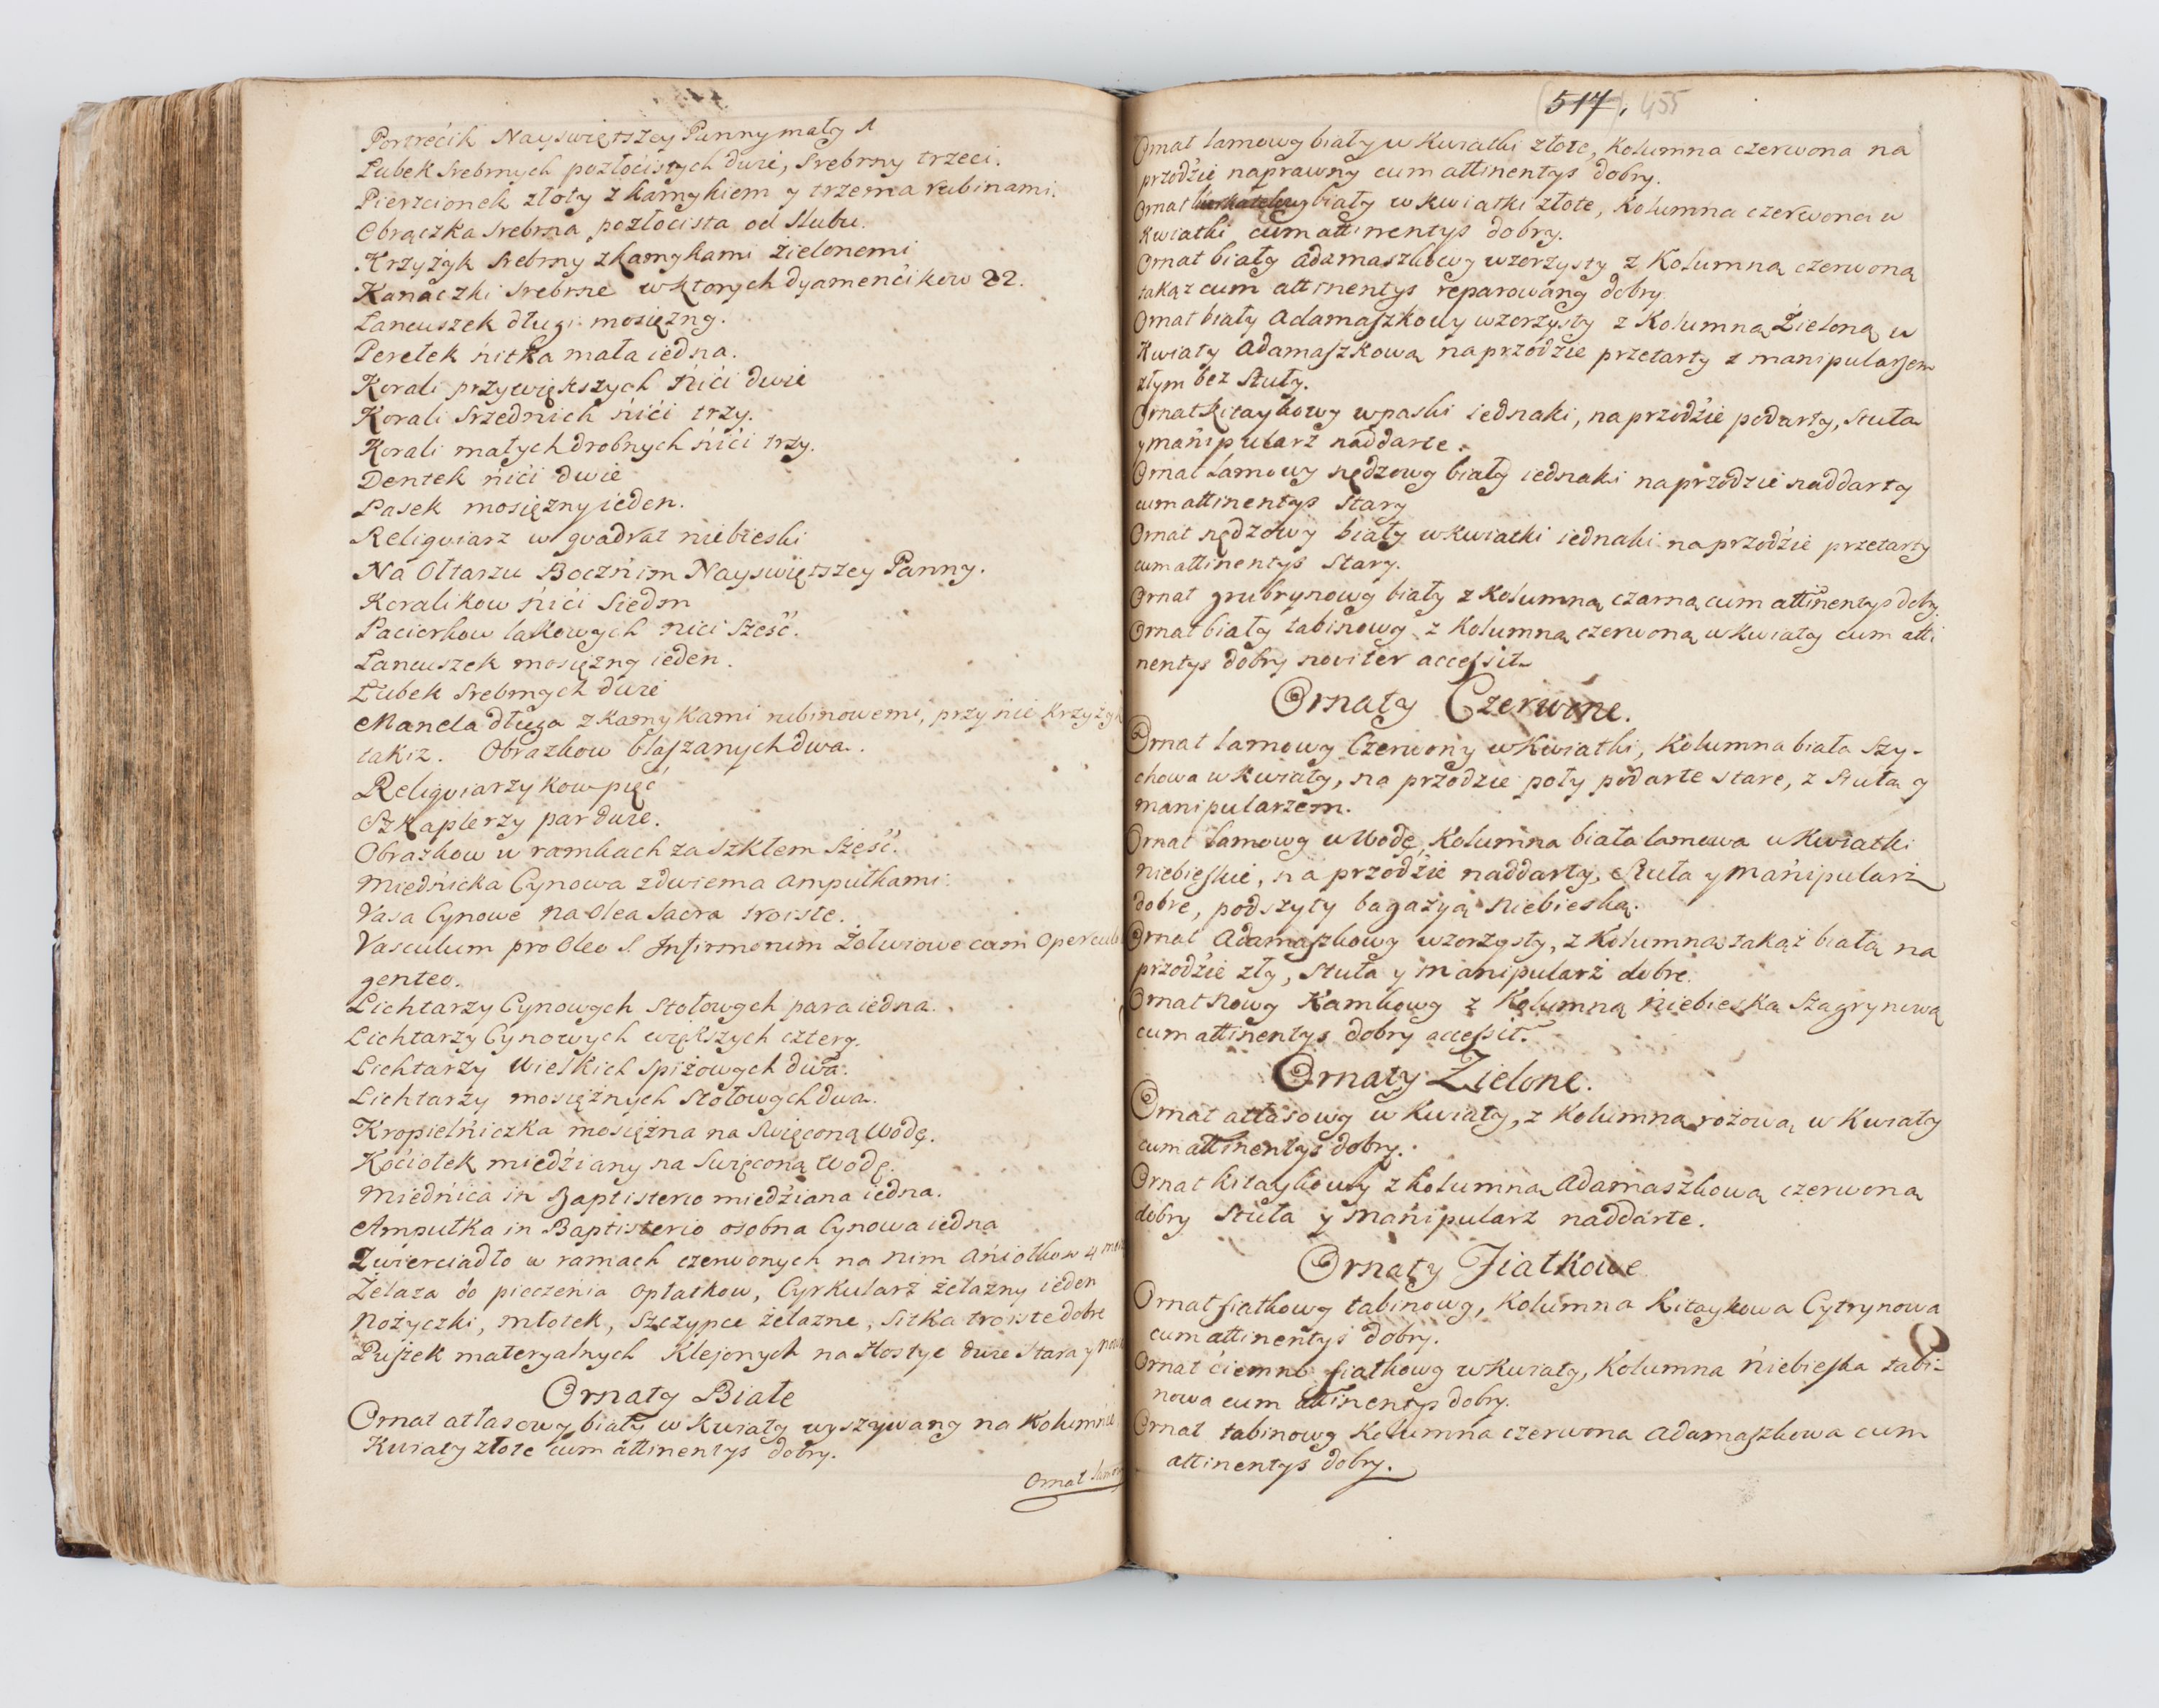 Portrećik Nayswiętszey Panny mały 1
Łubek Srebrnych pozłocistych dwie, Srebrny trzeci.
Pierzcionek złoty z kamykiem y trzema rubinami.
Obrączka srebrna pozłocista od slubu.
Krzyżyk srebrny z kamykami zielonemi
Kanaczki srebrne w ktorych dyamenćikow 22.
Łancuszek długi mosiężny.
Perełek nitka mała iedna.
Korali przywiększych nići dwie
Korali srzednich nići trzy.
Korali małych drobnych nići trzy.
Dentek nići dwie
Pasek mosiężny ieden.
Religviarz w qvadrat niebieski
Na Ołtarzu Bocznim Nayswiętszey Panny.
Koralikow nići siedm
Pacierkow lakowych nici sześć.
Łancuszek mosiężny ieden.
Łubek srebrnych dwie
Manela długa z kamykami rubinowemi, przy nie krzyżyk
takiz. Obrazkow blaszanych dwa.
Religviarzykow pięć
Szkaplerzy par dwie.
Obrazkow w ramkach za szkłem sześć.
Miednicka Cynowa z dwiema ampułkami.
Vasa Cynowe na Olea Sacra troiste.
Vasculum pro Oleo S. Infirmorum Żołwiowe cum Opercul
genteo.
Lichtarzy Cynowych stołowych para iedna.
Lichtarzy Cynowych większych cztery.
Lichtarzy Wielkich spiżowych dwa.
Lichtarzy mosiężnych stołowych dwa.
Kropielniczka mosiężna na swięconą Wodę.
Kociołek miedźiany na swięconą Wodę.
Miednica in Baptisterio miedźiana iedna.
Ampułka in Baptisterio osobna Cynowa iedna
Zwierciadło w ramach czerwonych na nim Aniołkow 4
Żelaza do pieczenia opłatkow, Cyrkularz żelazny ieden
Nożyczki, młotek, szczypce żelazne, sitka troiste dobre
Puszek materyalnych klejonych na Hostye dwie stara y
Ornaty Białe
Ornat atłasowy biały w kwiaty wyszywany na kolumnie
kwiaty złote cum attinentys dobry.
Ornat lamowy
517. 455
Ornat lamowy biały w kwiatki złote, kolumna czerwona na
przodźie naprawny cum attinentys dobry.
Ornat biały w kwiatki złote, kolumna czerwona w
kwiatki cum attinentys dobry.
Ornat biały adamaszkowy wzorzysty z kolumną czerwoną
takąz cum attinentys reparowany dobry
Ornat biały adamaszkowy wzorzysty z kolumną Zieloną w
kwiaty adamaszkową na przodzie przetarty z manipularzem
złym bez stuły.
Ornat kitaykowy w paski iednaki, na przodźie podarty, stuła
y manipularz naddarte.
Ornat lamowy nędzowy biały iednaki na przodzie naddarty
cum attinentys stary
Ornat nędzowy biały w kwiatki iednaki na przodźie przetarty
cum attinentys stary.
Ornat grubrynowy biały z kolumną czarną cum attinentys dobry.
Ornat biały tabinowy z kolumną czerwoną w kwiaty cum atti
nentys dobry noviter accessit
Ornaty Czerwone.
Ornat lamowy Czerwony w kwiatki, kolumna biała szy-
chowa w kwiaty, na przodzie poły podarte stare, z stułą y
manipularzem.
Ornat lamowy w Wodę, kolumna biała lamowa w kwiatki
niebieskie, na przodźie naddarty, stuła y manipularz
dobre, podszyty bagażyą niebieską.
Ornat adamaszkowy wzorzysty, z kolumną takąż białą na
przodźie zły, stuła y manipularż dobre.
Ornat nowy kamkowy z kolumną niebieską szagrynową
cum attinentys dobry accessit.
Ornaty Zielone.
Ornat atłasowy w kwiaty, z kolumną rożową w kwiaty
cum attinentys dobry.
Ornat kitaykowy z kolumną adamaszkową czerwoną
dobry stuła y manipularz naddarte.
Ornaty Fiałkowe
Ornat fiałkowy tabinowy, kolumna kitaykowa Cytrynowa
cum attinentys dobry.
Ornat ćiemno fiałkowy w kwiaty, kolumna niebieska tabi-
nowa cum attinentys dobry.
Ornat tabinowy kolumna czerwona adamaszkowa cum
attinentys dobry.